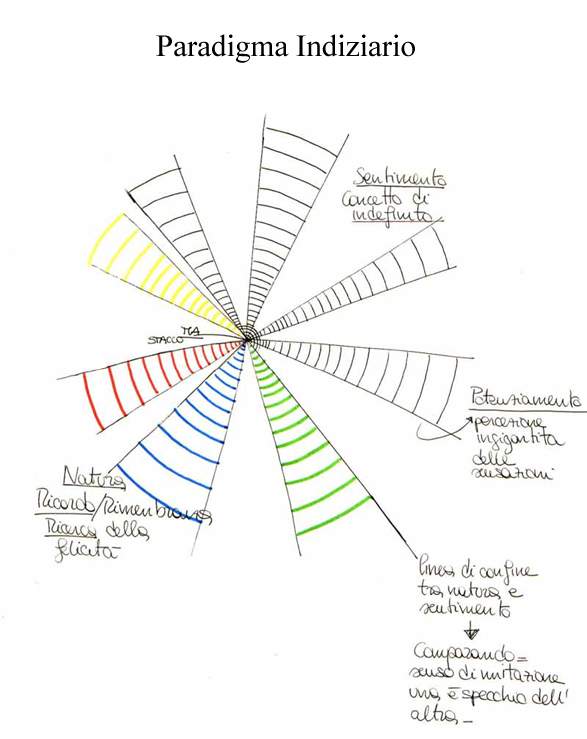 Paradigma Indiziario
Sentimento
Concetto di
indefinito
TRA
STACCO
Potenziamento
percezione
ingigantita
delle
sensazioni
Natura
Ricordo/Rimembranza
Ricerca della
felicità
linea di confine
tra natura e
sentimento
Comparando=
senso di imitazione
una è specchio dell'
altra_